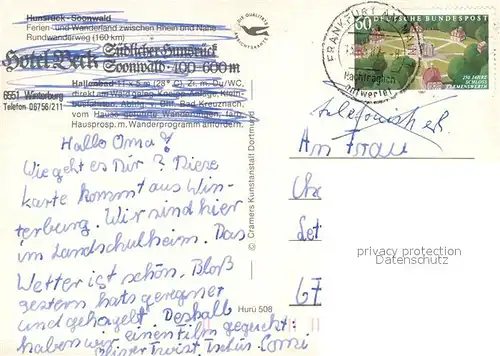 Hunsrück - Soonwald
Ferien- und Wanderland zwischen Rhein und Nahe
Rundwanderweg (160 km)
Hotel Beck Südlicher Hunsrück
Soonwald · 400-600 m
6551 Winterburg
Telefon 06756/211
Hallenbad 11 x 5 m (28° C), Zi. m. Du/WC,
direkt am Wald
Bad Kreuznach,
vom Hause
Hausprosp. m. Wanderprogramm anfordern.
Hallo Oma!
Wie geht es Dir? Diese
Karte kommt aus Win-
terburg. Wir sind hier
im Landschulheim. Das
Wetter ist schön. Bloß
gestern hats geregnet
und gehagelt. Deshalb
haben wir einen Film geguckt:
Oliver Twist. Tschüs
© Cramers Kunstanstalt Dortmund
Hurü 508
DIE QUALITÄTS
FRANKFURT AM
Nachträglich
entwertet
60
DEUTSCHE BUNDESPOST
250 JAHRE
SCHLOSS
CLEMENSWERTH
An Frau
67
privacy protection
Datenschutz